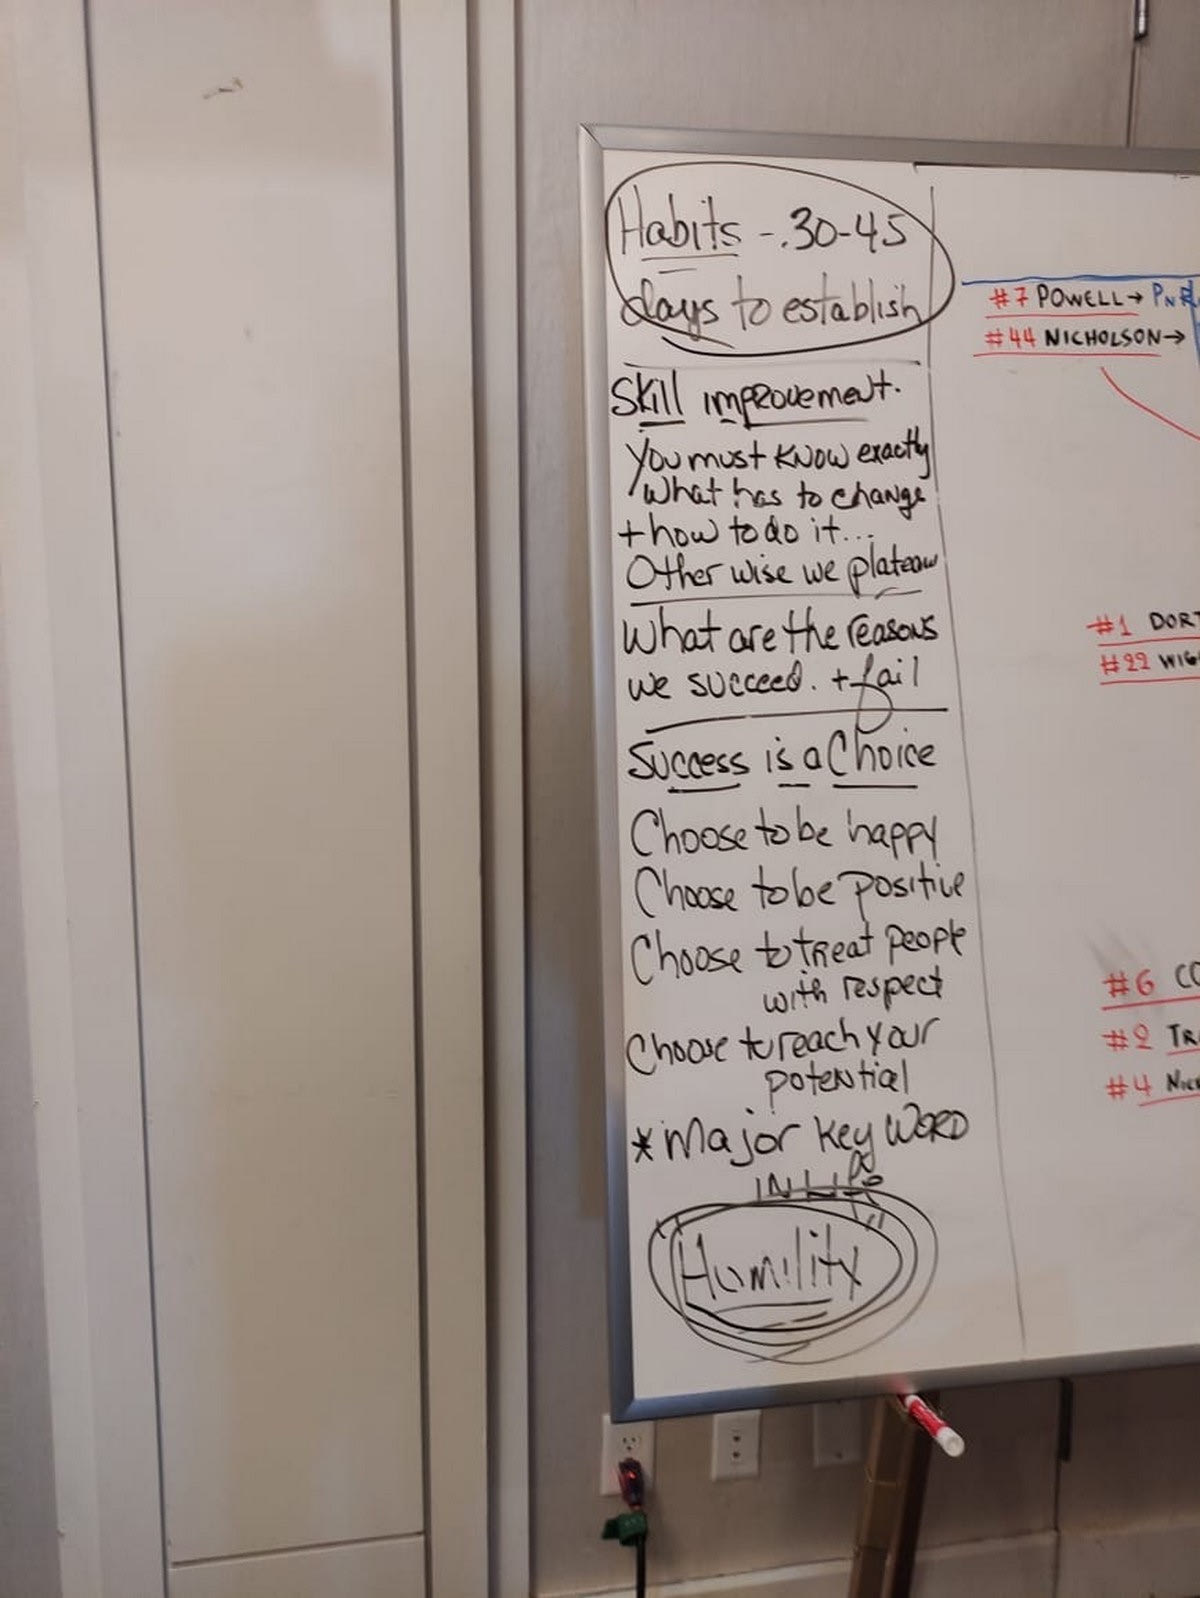 Habits - 30-45
days to establish
Skill improvement.
You must know exactly
what has to change
+ how to do it...
Other wise we plateau
What are the reasons
we succeed. + fail
Success is a Choice
Choose to be happy
Choose to be positive
Choose to treat people
with respect
Choose to reach your
potential
*Major Key WORD
IN Life
"Humility"
#7 POWELL→
#44 NICHOLSON→
#1 DORT
#22 WIG
#6 CO
#2 TR
#4 NICK